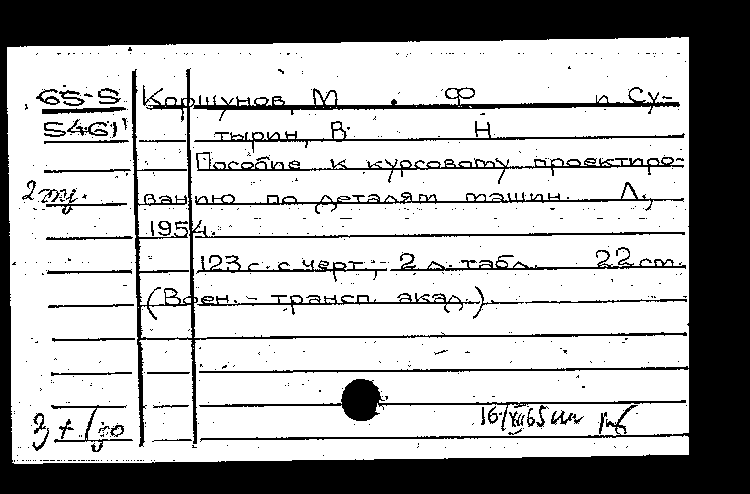 65-5 Коршунов, М. Ф. и Су-
5461 тырин, В. Н.
Пособие к курсовому проектиро-
2 экз. ванию по деталям машин. Л.,
1954.
123 с. с черт.; 2 л. табл. 22 см.
(Воен.-трансп. акад.).
16/XII 65